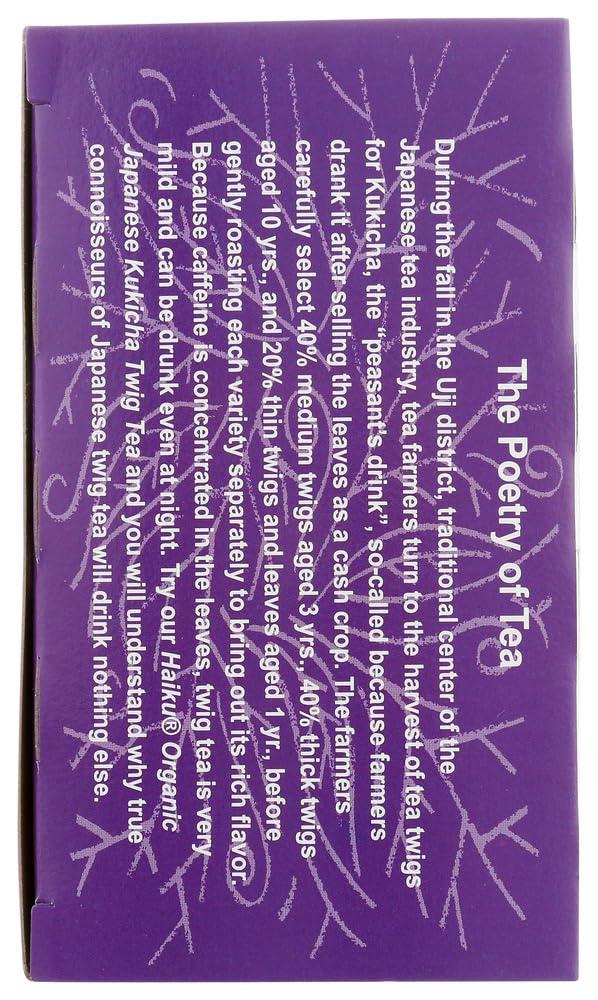 The Poetry of Tea
During the fall in the Uji district, traditional center of the
Japanese tea industry, tea farmers turn to the harvest of tea twigs
for Kukicha, the "peasant's drink", so-called because farmers
drank it after selling the leaves as a cash crop. The farmers
carefully select 40% medium twigs aged 3 yrs., 40% thick twigs
aged 10 yrs., and 20% thin twigs and leaves aged 1 yr., before
gently roasting each variety separately to bring out its rich flavor.
Because caffeine is concentrated in the leaves, twig tea is very
mild and can be drunk even at night. Try our Haiku® Organic
Japanese Kukicha Twig Tea and you will understand why true
connoisseurs of Japanese twig tea will drink nothing else.